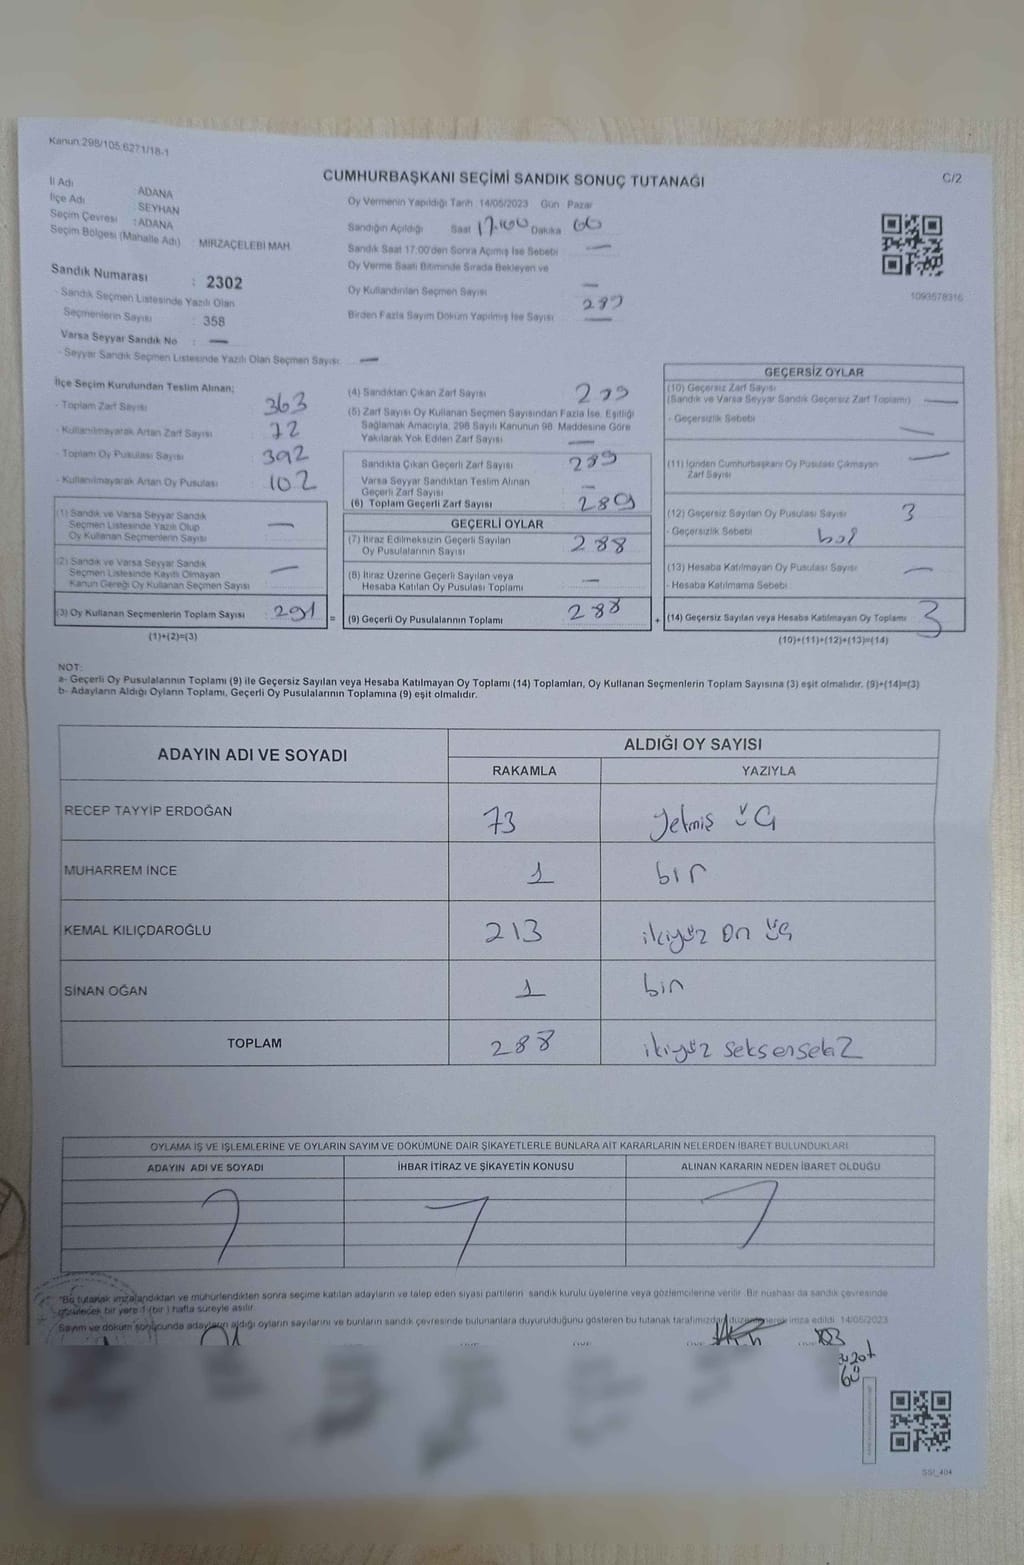 Kanun:298/105;6271/18-1
C/2
CUMHURBAŞKANI SEÇİMİ SANDIK SONUÇ TUTANAĞI
İl Adı : ADANA
İlçe Adı : SEYHAN
Seçim Çevresi : ADANA
Seçim Bölgesi (Mahalle Adı) MİRZAÇELEBİ MAH.
Sandık Numarası : 2302
- Sandık Seçmen Listesinde Yazılı Olan
Seçmenlerin Sayısı : 358
Varsa Seyyar Sandık No : —
- Seyyar Sandık Seçmen Listesinde Yazılı Olan Seçmen Sayısı: —
Oy Vermenin Yapıldığı Tarih :14/05/2023 Gün : Pazar
Sandığın Açıldığı Saat Dakika
Sandık Saat 17:00'den Sonra Açımış İse Sebebi —
Oy Verme Saati Bitiminde Sırada Bekleyen ve
Oy Kullandırılan Seçmen Sayısı —
Birden Fazla Sayım Döküm Yapılmış İse Sayısı —
1093578316
İlçe Seçim Kurulundan Teslim Alınan;
- Toplam Zarf Sayısı : 363
- Kullanılmayarak Artan Zarf Sayısı : 72
- Toplam Oy Pusulası Sayısı : 392
- Kullanılmayarak Artan Oy Pusulası : 102
(1) Sandık ve Varsa Seyyar Sandık
Seçmen Listesinde Yazılı Olup
Oy Kullanan Seçmenlerin Sayısı : —
(2) Sandık ve Varsa Seyyar Sandık
Seçmen Listesinde Kayıtlı Olmayan
Kanun Gereği Oy Kullanan Seçmen Sayısı : —
(3) Oy Kullanan Seçmenlerin Toplam Sayısı : 291
(1)+(2)=(3)
=
(4) Sandıktan Çıkan Zarf Sayısı
(5) Zarf Sayısı Oy Kullanan Seçmen Sayısından Fazla İse, Eşitliği
Sağlamak Amacıyla, 298 Sayılı Kanunun 98. Maddesine Göre
Yakılarak Yok Edilen Zarf Sayısı —
Sandıkta Çıkan Geçerli Zarf Sayısı 289
Varsa Seyyar Sandıktan Teslim Alınan
Geçerli Zarf Sayısı —
(6) Toplam Geçerli Zarf Sayısı 289
GEÇERLİ OYLAR
(7) İtiraz Edilmeksizin Geçerli Sayılan
Oy Pusulalarının Sayısı 288
(8) İtiraz Üzerine Geçerli Sayılan veya
Hesaba Katılan Oy Pusulası Toplamı —
(9) Geçerli Oy Pusulalarının Toplamı 288
+
GEÇERSİZ OYLAR
(10) Geçersiz Zarf Sayısı
(Sandık ve Varsa Seyyar Sandık Geçersiz Zarf Toplamı) —
- Geçersizlik Sebebi —
(11) İçinden Cumhurbaşkanı Oy Pusulası Çıkmayan
Zarf Sayısı —
(12) Geçersiz Sayılan Oy Pusulası Sayısı 3
- Geçersizlik Sebebi : boş
(13) Hesaba Katılmayan Oy Pusulası Sayısı —
- Hesaba Katılmama Sebebi :
(14) Geçersiz Sayılan veya Hesaba Katılmayan Oy Toplamı 3
(10)+(11)+(12)+(13)=(14)
NOT:
a- Geçerli Oy Pusulalarının Toplamı (9) ile Geçersiz Sayılan veya Hesaba Katılmayan Oy Toplamı (14) Toplamları, Oy Kullanan Seçmenlerin Toplam Sayısına (3) eşit olmalıdır. (9)+(14)=(3)
b- Adayların Aldığı Oyların Toplamı, Geçerli Oy Pusulalarının Toplamına (9) eşit olmalıdır.
ADAYIN ADI VE SOYADI ALDIĞI OY SAYISI
RAKAMLA YAZIYLA
RECEP TAYYİP ERDOĞAN 73 Yetmiş üç
MUHARREM İNCE 1 bir
KEMAL KILIÇDAROĞLU 213 ikiyüz on üç
SİNAN OĞAN 1 bir
TOPLAM 288 ikiyüz seksensekiz
OYLAMA İŞ VE İŞLEMLERİNE VE OYLARIN SAYIM VE DÖKÜMÜNE DAİR ŞİKAYETLERLE BUNLARA AİT KARARLARIN NELERDEN İBARET BULUNDUKLARI
ADAYIN ADI VE SOYADI İHBAR İTİRAZ VE ŞİKAYETİN KONUSU ALINAN KARARIN NEDEN İBARET OLDUĞU
"Bu tutanak imzalandıktan ve mühürlendikten sonra seçime katılan adayların ve talep eden siyasi partilerin sandık kurulu üyelerine veya gözlemcilerine verilir. Bir nushası da sandık çevresinde
görülecek bir yere 1 (bir ) hafta süreyle asılır.
Sayım ve döküm sonucunda adayların aldığı oyların sayılarını ve bunların sandık çevresinde bulunanlara duyurulduğunu gösteren bu tutanak tarafımızdan düzenlenerek imza edildi. 14/05/2023
SSI_404